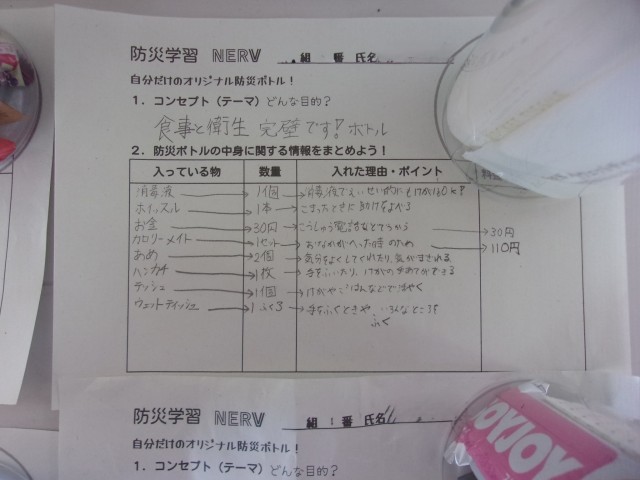 防災学習 NERV 組 番 氏名
自分だけのオリジナル防災ボトル！
1．コンセプト（テーマ）どんな目的？
食事と衛生 完璧です！ボトル
2．防災ボトルの中身に関する情報をまとめよう！
入っている物 数量 入れた理由・ポイント
消毒液 1個 消毒液で
ホイッスル 1本 こまったときに助けをよべる
お金 30円 こうしゅう電話などでつかう 30円
カロリーメイト 1セット おなかがへった時のため 110円
あめ 2個 気分をよくしてくれたり、気がまぎれる
ハンカチ 1枚 手をふいたり、けがの手あてができる
テッシュ 1個 けがやごはんなどで
ウェットティッシュ 1ふくろ 手をふくときや、いろんなところを
ふく
防災学習 NERV 組 番 氏名
自分だけのオリジナル防災ボトル！
1．コンセプト（テーマ）どんな目的？
JOYJOY